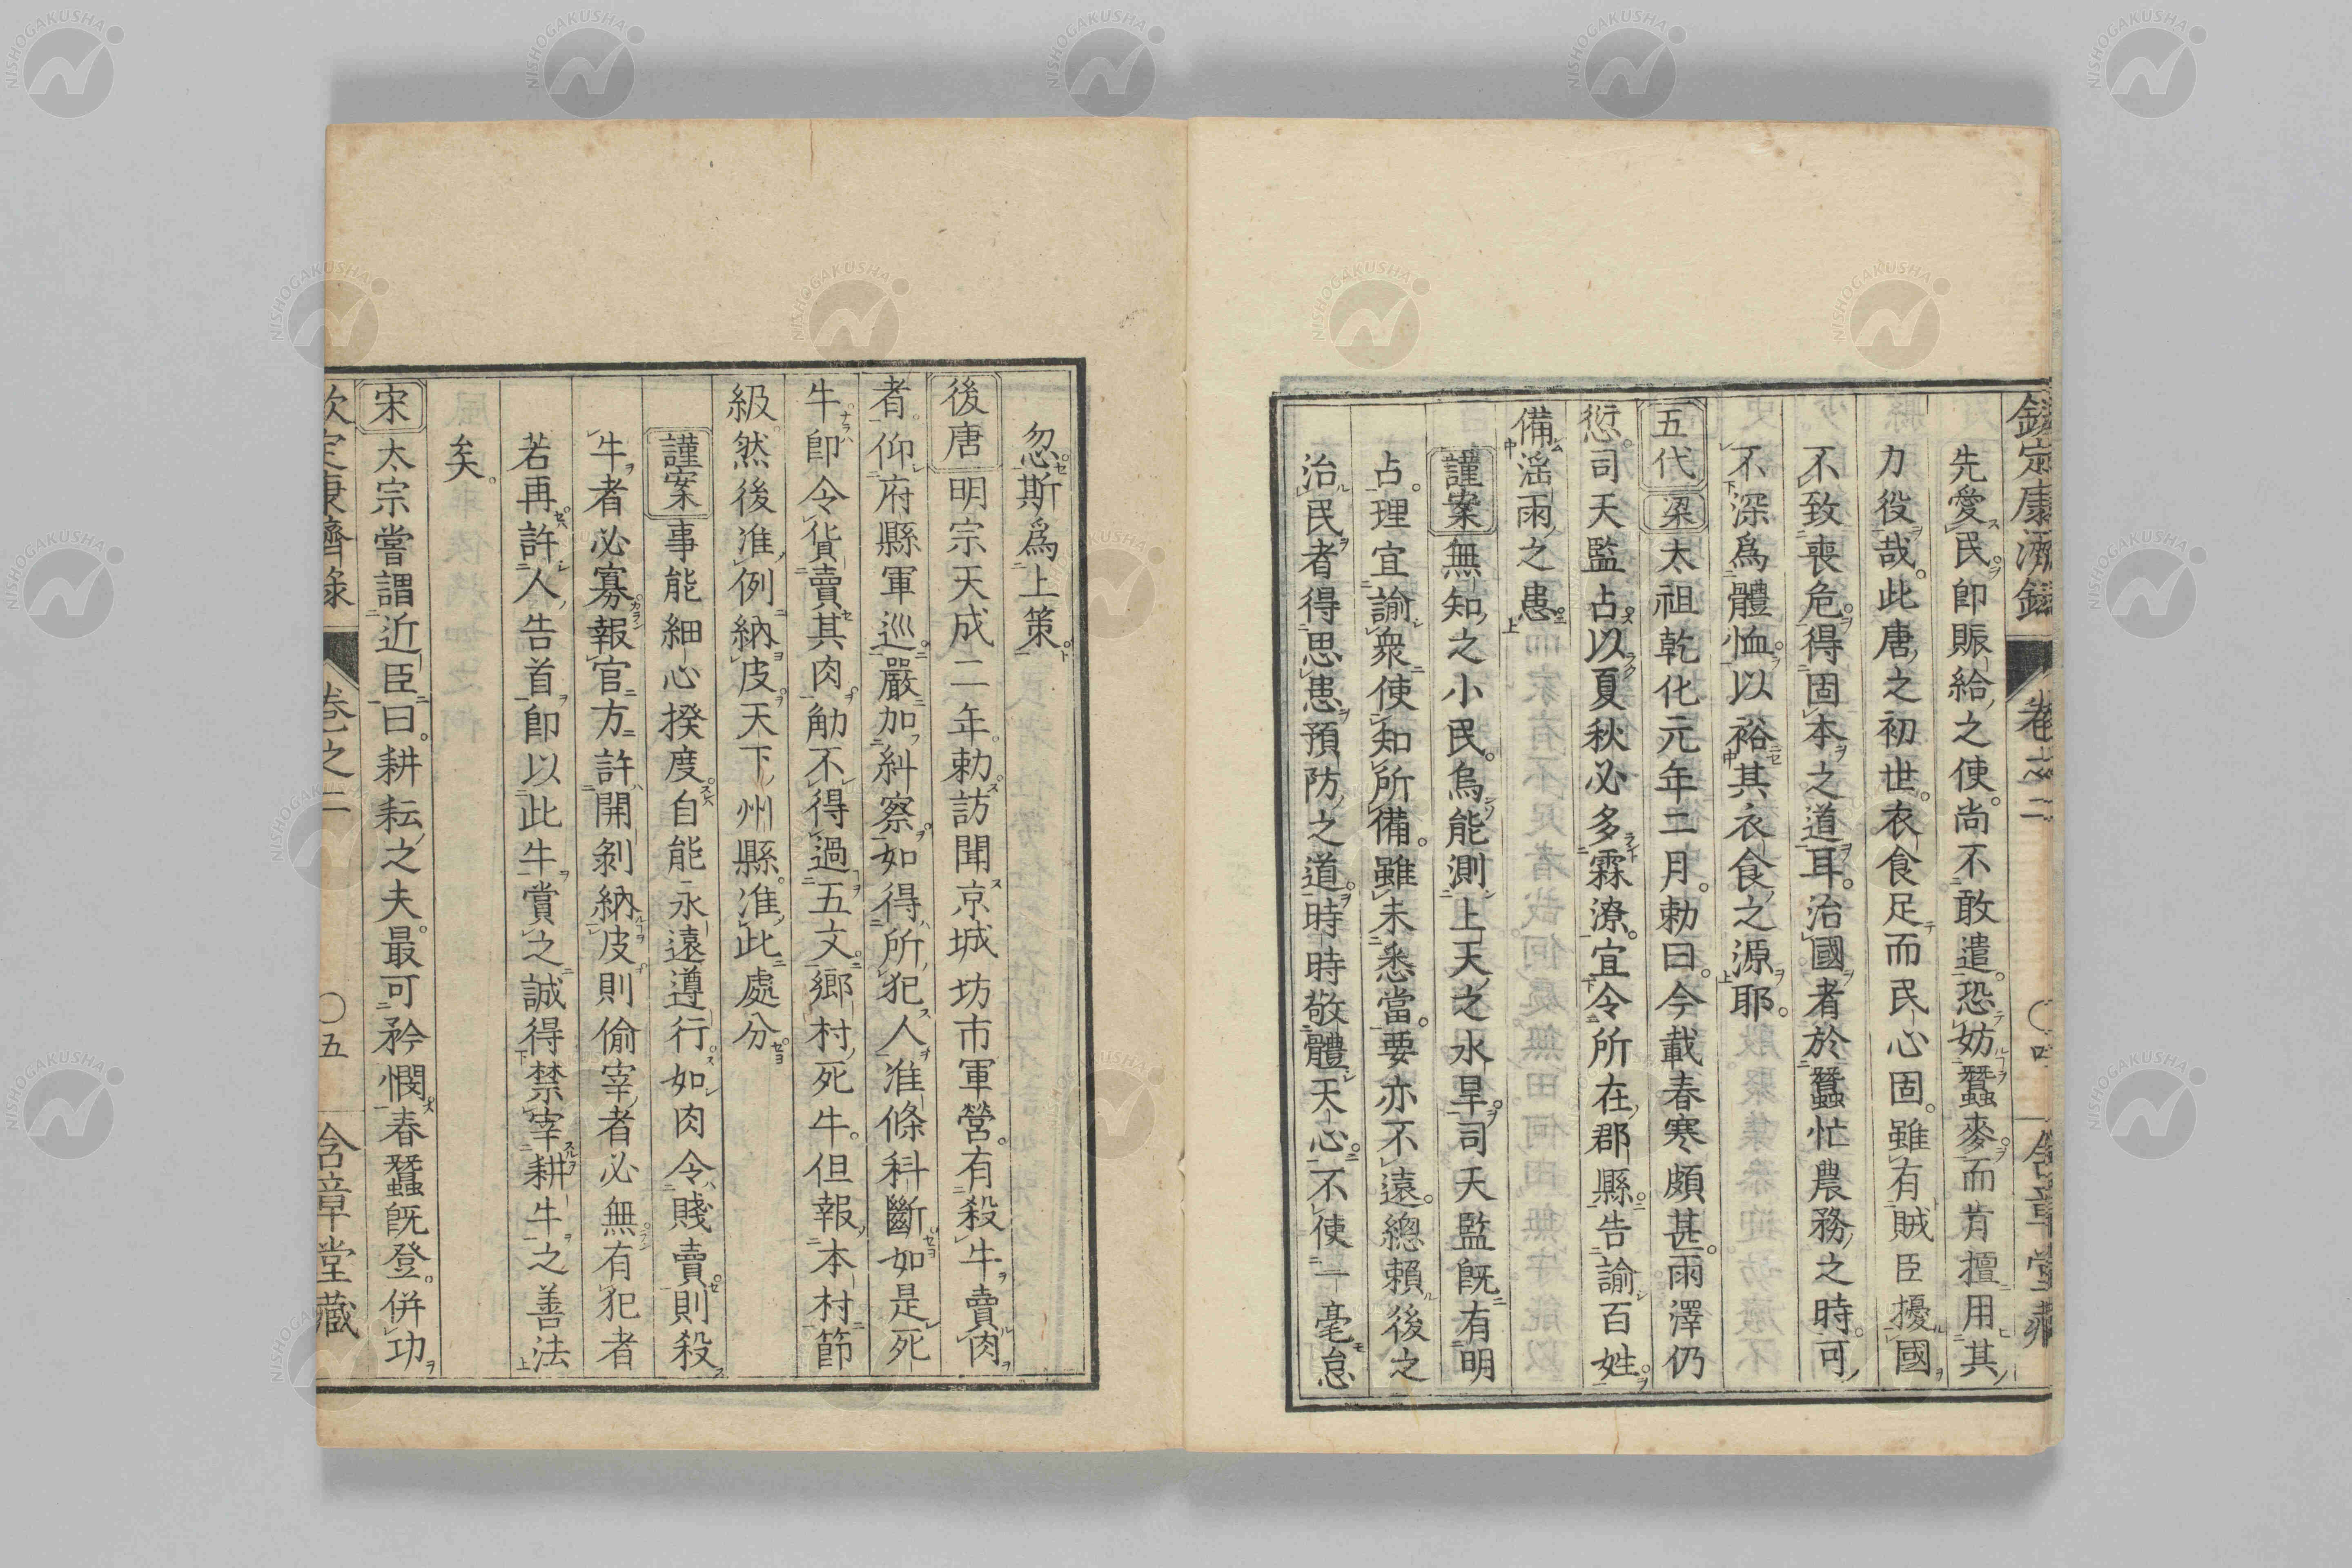 欽定康濟錄 卷之二 〇四 含章堂藏
先愛民卽賑給之使。尚不敢遣。恐妨蠶麥。而肯擅用其
力役哉。此唐之初世。衣食足而民心固。雖有賊臣擾國
不致喪危。得固本之道耳。治國者於蠶忙農務之時。可
不深爲體恤。以裕其衣食之源耶。
五代 梁 太祖乾化元年二月。勅曰。今載春寒頗甚。雨澤仍
愆。司天監占以夏秋必多霖潦。宜令所在郡縣。告諭百姓。
備淫雨之患。
謹案 無知之小民。烏能測上天之水旱。司天監旣有明
占。理宜諭衆使知所備。雖未悉當。要亦不遠。總賴後之
治民者得思患預防之道。時時敬體天心。不使一毫怠
忽。斯爲上策。
後唐 明宗天成二年。勅。訪聞京城坊市軍營。有殺牛賣肉
者。仰府縣軍巡。嚴加糾察。如得所犯人。准條科斷。如是死
牛。卽令貨賣其肉。觔不得過五文。鄉村死牛。但報本村節
級。然後准例納皮。天下州縣。准此處分。
謹案 事能細心揆度。自能永遠遵行。如肉令賤賣。則殺
牛者必寡。報官方許開剝納皮。則偷宰者必無。有犯者
若再許人告首。卽以此牛賞之。誠得禁宰耕牛之善法
矣。
宋 太宗嘗謂近臣曰。耕耘之夫。最可矜憫。春蠶旣登。併功
欽定康濟錄 卷之二 〇五 含章堂藏
NISHOGAKUSHA